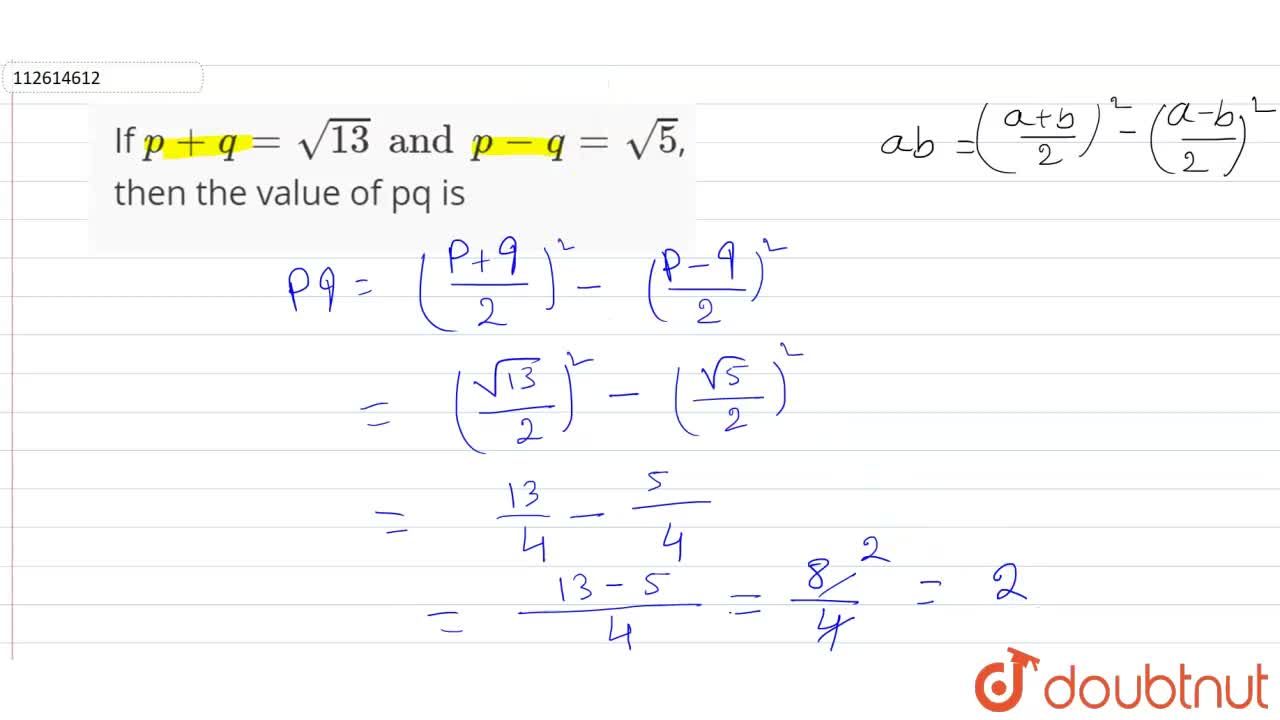 112614612
If p + q = √13 and p − q = √5,
then the value of pq is
ab = ((a+b)/2)² − ((a-b)/2)²
pq = ((p+q)/2)² − ((p−q)/2)²
= (√13/2)² − (√5/2)²
= 13/4 − 5/4
= (13−5)/4 = 8/4 2 = 2
doubtnut